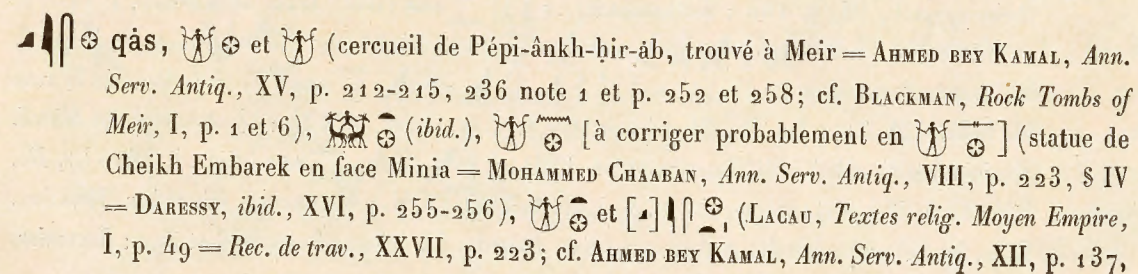 𓈎𓇋𓋴𓊖 qȧs, 𓀏𓊖 et 𓀏 (cercueil de Pépi-ânkh-ḥir-ȧb, trouvé à Meir = AHMED BEY KAMAL, Ann.
Serv. Antiq., XV, p. 212-215, 236 note 1 et p. 252 et 258; cf. BLACKMAN, Rock Tombs of
Meir, I, p. 1 et 6), (ibid.), 𓀏𓈖𓊖 [à corriger probablement en 𓀏𓊃𓊖] (statue de
Cheikh Embarek en face Minia = MOHAMMED CHAABAN, Ann. Serv. Antiq., VIII, p. 223, § IV
= DARESSY, ibid., XVI, p. 255-256), 𓀏𓏏𓊖 et [𓈎]𓇋𓋴𓊖 (LACAU, Textes relig. Moyen Empire,
I, p. 49 = Rec. de trav., XXVII, p. 223; cf. AHMED BEY KAMAL, Ann. Serv. Antiq., XII, p. 137,